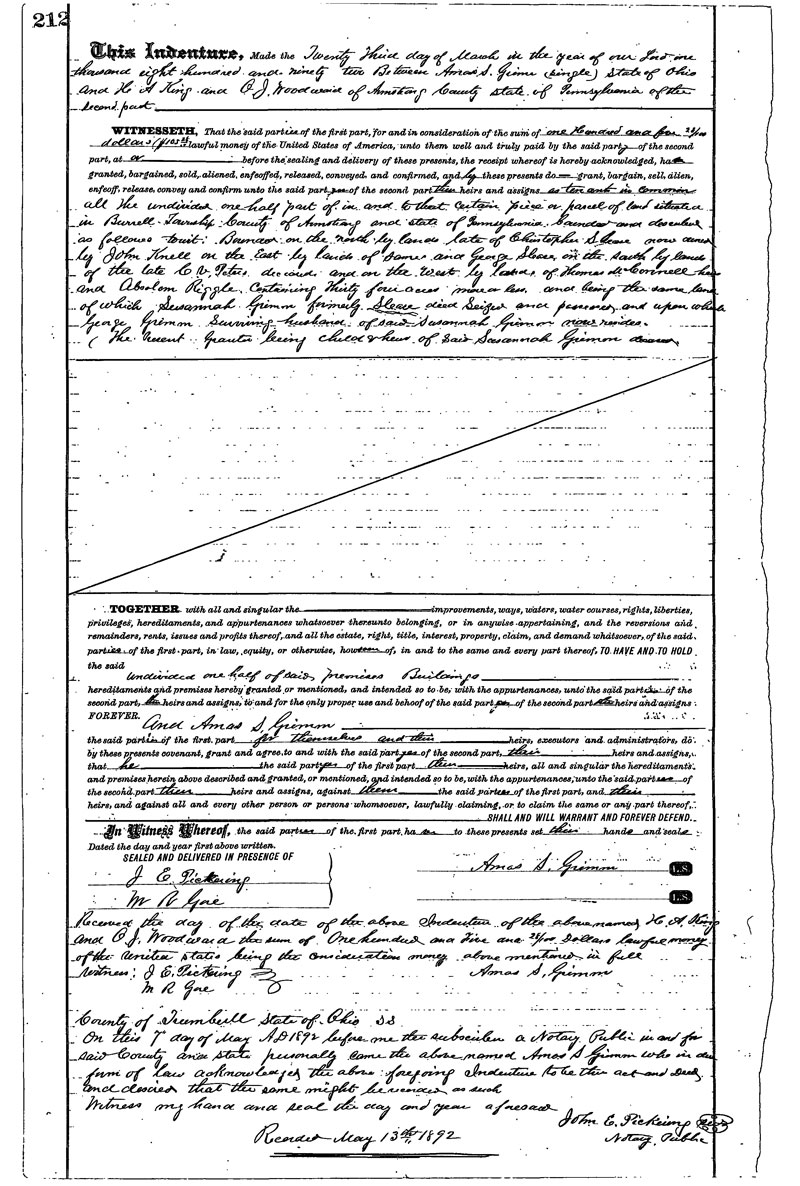 212
This Indenture, Made the Twenty Third day of March in the year of our Lord one
thousand eight hundred and ninety two Between Amas S. Grimm (single) State of Ohio
and H A King and O J. Woodward of Armstrong County state of Pennsylvania of the
second part
WITNESSETH, That the said parties of the first part, for and in consideration of the sum of one Hundred and five 25/100
dollars ($105 25 lawful money of the United States of America, unto them well and truly paid by the said party of the second
part, at or before the sealing and delivery of these presents, the receipt whereof is hereby acknowledged, ha
granted, bargained, sold, aliened, enfeoffed, released, conveyed and confirmed, and by these presents do grant, bargain, sell, alien,
enfeoff, release, convey and confirm unto the said part of the second part their heirs and assigns as tenant in common
all the undivided one half part of in and to that certain piece or parcel of land situated
in Burrell Township County of Armstrong and state of Pennsylvania bounded and described
as follows towit: Bounded on the north by lands late of Christopher Slease now owned
by John Knell on the East by lands of same and George Slease, on the south by lands
of the late C. W. Peters deceased and on the west by lands of Thomas McConnell heirs
and Absolom Riggle. Containing Thirty four acres more or less. and being the same land
of which Susannah Grimm formerly Slease died Seized and possessed and upon which
George Grimm surviving husband of said Susannah Grimm now resides.
(The Present Grantor being child & heir of said Susannah Grimm deceased
TOGETHER with all and singular the improvements, ways, waters, water courses, rights, liberties,
privileges, hereditaments, and appurtenances whatsoever thereunto belonging, or in anywise appertaining, and the reversions and
remainders, rents, issues and profits thereof, and all the estate, right, title, interest, property, claim, and demand whatsoever, of the said
parties of the first part, in law, equity, or otherwise, howsoever of, in and to the same and every part thereof, TO HAVE AND TO HOLD
the said
undivided one half of said premises Buildings
hereditaments and premises hereby granted or mentioned, and intended so to be, with the appurtenances, unto the said parties of the
second part, heirs and assigns, to and for the only proper use and behoof of the said part of the second part heirs and assigns
FOREVER. And Amas S. Grimm
the said parties of the first part for themselves and their heirs, executors and administrators, do
by these presents covenant, grant and agree, to and with the said parties of the second part, their heirs and assigns,
that he the said part of the first part their heirs, all and singular the hereditaments
and premises herein above described and granted, or mentioned, and intended so to be, with the appurtenances, unto the said part of
the second part them heirs and assigns, against them the said parties of the first part, and their
heirs, and against all and every other person or persons whomsoever, lawfully claiming, or to claim the same or any part thereof,
SHALL AND WILL WARRANT AND FOREVER DEFEND.
In Witness Whereof, the said parties of the first part ha to these presents set their hands and seals
Dated the day and year first above written.
SEALED AND DELIVERED IN PRESENCE OF
J E. Pickering
M R Gae
Amas S. Grimm L.S.
L.S.
Received the day of the date of the above Indenture of the above named H. A. King
and O J. Woodward the sum of One hundred and Five and 25/100 Dollars lawful money
of the United states being the consideration money above mentioned in full
Witness: J E. Pickering Amas S. Grimm
M R Gae
County of Trumbull State of Ohio SS
On this 7 day of May A D 1892 before me the subscriber a Notary Public in and for
said County and state personally came the above named Amas S Grimm who in due
form of law acknowledged the above foregoing Indenture to be their act and Deed,
and desired that the same might be recorded as such
Witness my hand and seal the day and year aforesaid
John E. Pickering
Notary Public
Recorded May 13th 1892